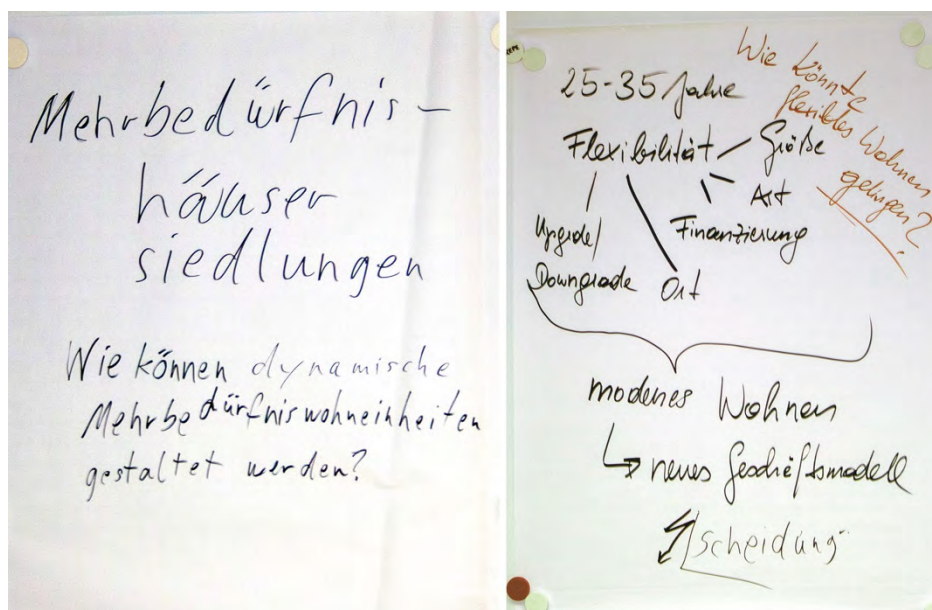 Mehrbedürfnis-
häuser
siedlungen
Wie können dynamische
Mehrbedürfniswohneinheiten
gestaltet werden?
25-35 Jahre
Wie könnte
flexibles Wohnen
gelingen?
Flexibilität
Größe
Art
Finanzierung
Upgrade/
Downgrade
Ort
modernes Wohnen
neues Geschäftsmodell
scheidung